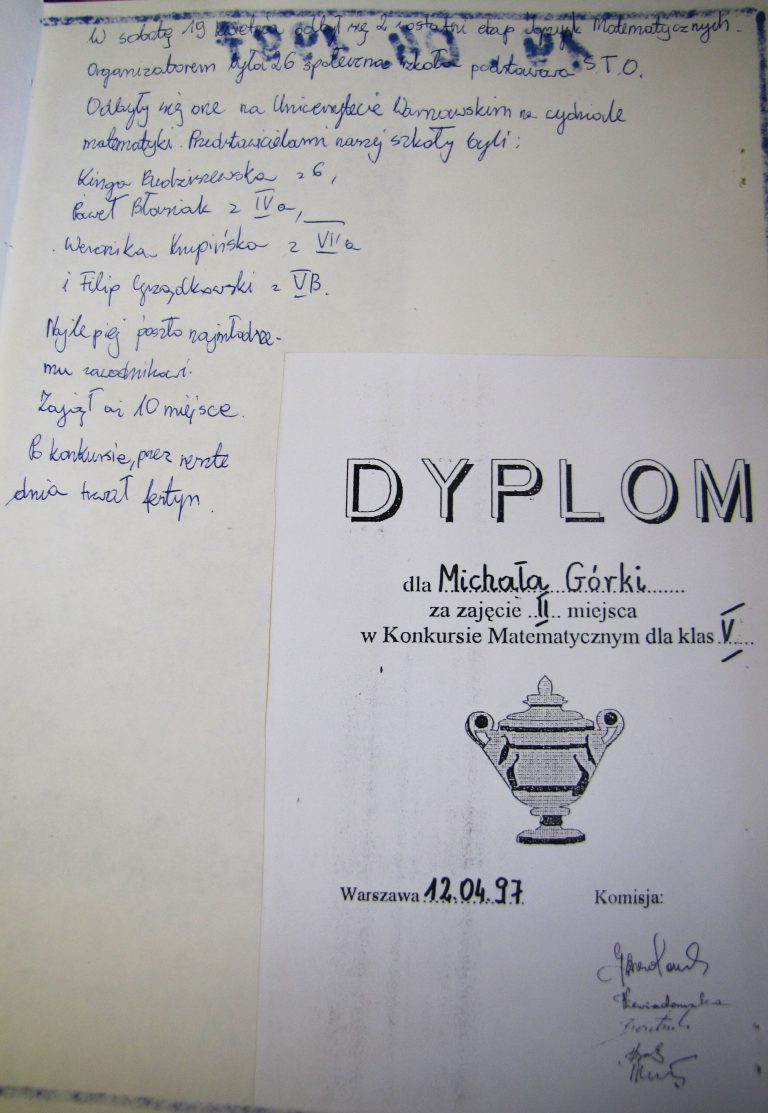 W sobotę 19 kwietnia odbył się 2 i ostatni etap Igrzysk Matematycznych.
Organizatorem była 26 społeczna szkoła podstawowa S.T.O.
Odbyły się one na Uniwersytecie Warszawskim na wydziale
matematyki. Przedstawicielami naszej szkoły byli:
Kinga Budziszewska z 6,
Paweł Błasiak z IV a,
Weronika Krupińska z VII a
i Filip Grządkowski z VB.
Najlepiej poszło najmłodsze-
mu zawodnikowi.
Zajął on 10 miejsce.
Po konkursie, przez resztę
dnia trwał festyn.
DYPLOM
dla Michała Górki
za zajęcie II miejsca
w Konkursie Matematycznym dla klas V
Warszawa 12.04.97 Komisja: